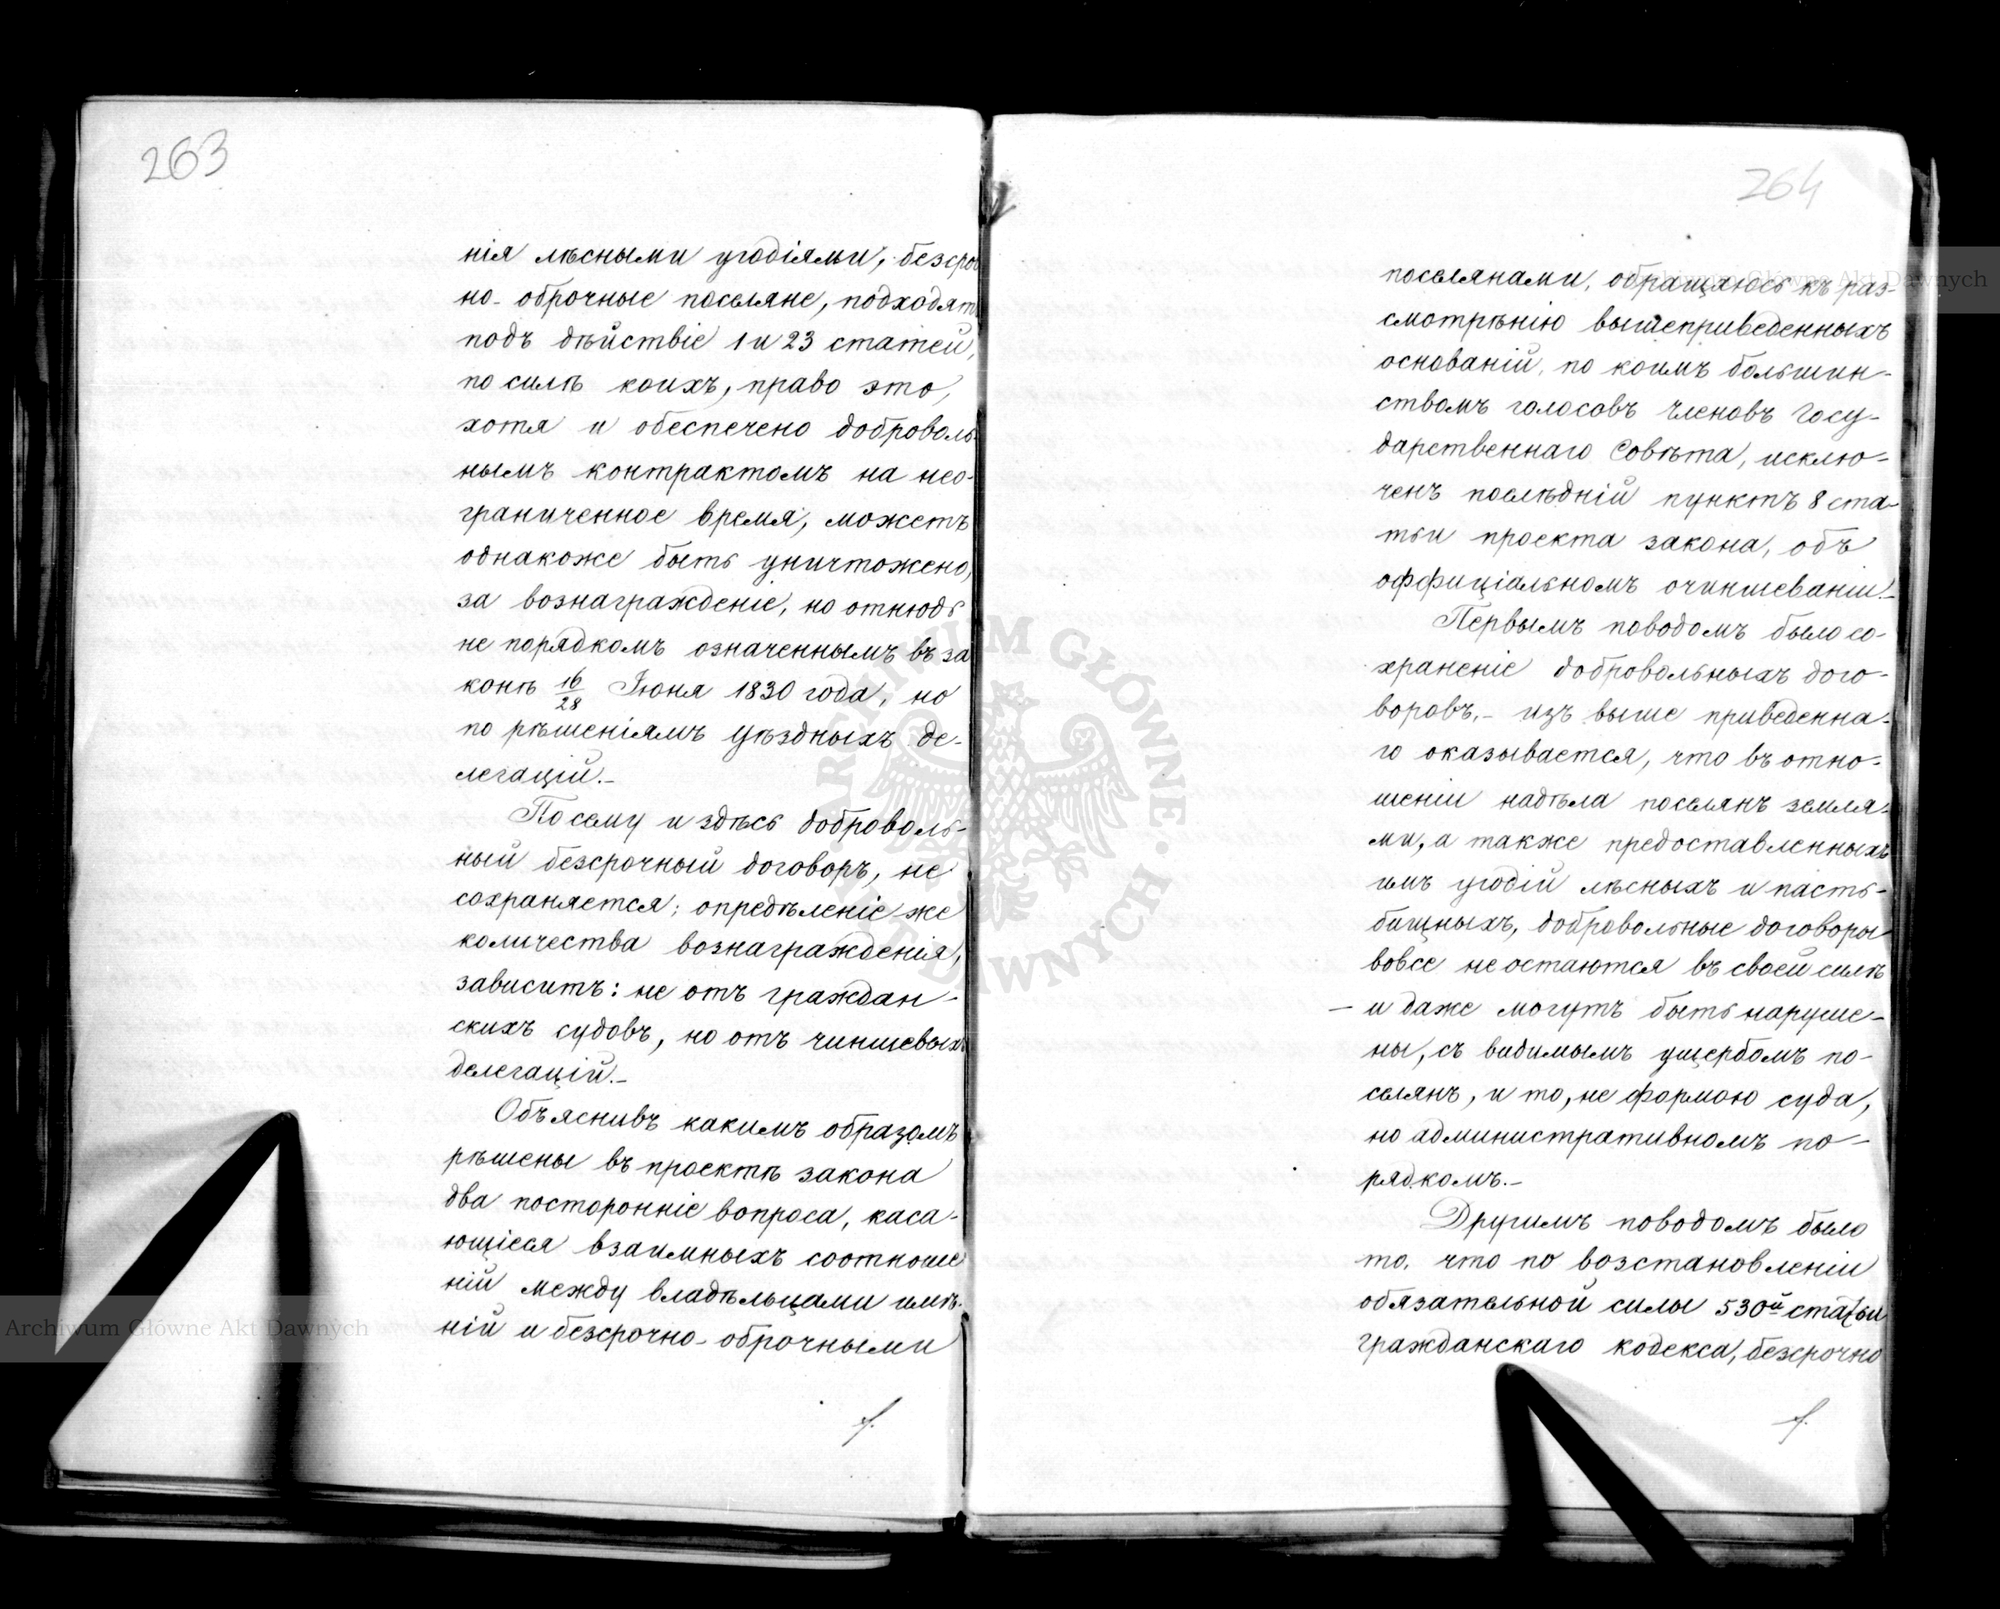 263
нія лѣсными угодіями, безсроч
но-оброчные поселяне, подходятъ
подъ дѣйствіе 1 и 23 статей,
по силѣ коихъ, право это,
хотя и обеспечено доброволь-
нымъ контрактомъ на нео-
граниченное время, можетъ
однакоже быть уничтожено,
за вознагражденіе, но отнюдь
не порядкомъ означеннымъ въ за
конѣ 16/28 Іюня 1830 года, но
по рѣшеніямъ уѣздныхъ де-
легацій.-
Посему и здѣсь доброволь-
ный безсрочный договоръ, не
сохраняется; опредѣленіе же
количества вознагражденія,
зависитъ: не отъ граждан-
скихъ судовъ, но отъ чиншевыхъ
делегацій.-
Объяснивъ какимъ образомъ
рѣшены въ проектѣ закона
два посторонніе вопроса, каса-
ющіеся взаимныхъ соотноше
ній между владѣльцами имѣ-
ній и безсрочно-оброчными
264
поселянами, обращаюсь къ раз-
смотрѣнію вышеприведенныхъ
основаній, по коимъ большин-
ствомъ голосовъ членовъ Госу-
дарственнаго Совѣта, исклю-
ченъ послѣдній пунктъ 8 ста-
тьи проекта закона, объ
оффиціальномъ очиншеваніи.-
Первымъ поводомъ было со-
храненіе добровольныхъ дого-
воровъ,- изъ выше приведенна-
го оказывается, что въ отно-
шеніи надѣла поселянъ земля-
ми, а также предоставленныхъ
имъ угодій лѣсныхъ и пасть-
бищныхъ, добровольные договоры
вовсе не остаются въ своей силѣ
– и даже могутъ быть наруше-
ны, съ видимымъ ущербомъ по-
селянъ, и то, не формою суда,
но административномъ по-
рядкомъ.-
Другимъ поводомъ было
то, что по возстановленіи
обязательной силы 530й статьи
гражданскаго кодекса, безсрочно
Archiwum Główne Akt Dawnych
Archiwum Główne Akt Dawnych
ARCHIWUM GŁÓWNE AKT DAWNYCH